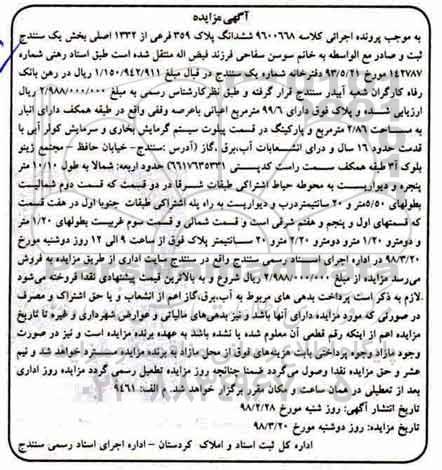 آگهی مزایده
به موجب پرونده اجرائی کلاسه ۹۶۰۰۶۶۸ ششدانگ پلاک ۳۵۹ فرعی از ۱۳۳۲ اصلی بخش یک سنندج
ثبت و صادر مع الواسطه به خانم سوسن سفاحی فرزند فیض اله منتقل شده است طبق اسناد رهنی شماره
۱۴۲۷۸۷ مورخ ۹۳/۵/۲۱ دفترخانه شماره یک سنندج در قبال مبلغ ۱/۱۵۰/۹۴۲/۹۱۱ ریال در رهن بانک
رفاه کارگران شعبه آبیدر سنندج قرار گرفته و طبق نظرکارشناس رسمی به مبلغ ۲/۹۸۸/۰۰۰/۰۰۰ ریال
ارزیابی شده و پلاک فوق دارای ۹۹/۶ مترمربع اعیانی باعرصه وقفی واقع در طبقه همکف دارای انبار
به مساحت ۲/۸۶ مترمربع و پارکینگ در قسمت پیلوت سیستم گرمایش بخاری و سرمایش کولر آبی با
قدمت حدود ۱۶ سال و درای انشعابات آب،برق ،گاز (آدرس :سنندج- خیابان حافظ – مجتمع ژینو
بلوک ۳آ طبقه همکف سمت راست کدپستی ۶۶۱۷۶۳۵۳۳۱) حدود اربعه: شمالا به طول ۱۰/۱۰ متر
پنجره و دیواریست به محوطه حیاط اشتراکی طبقات شرقا در دو قسمت که قسمت دوم شمالیست
بطولهای ۵/۵۰متر و ۲۰ سانتیمتردرب و دیواریست به راه پله اشتراکی طبقات جنوبا اول در هفت قسمت
که قسمتهای اول و پنجم و هفتم شرقی است و قسمت شمالی و قسمت سوم غربیست بطولهای ۱/۲۰ متر
و دومترو ۱/۲۰ مترو دومترو ۲/۲۰ مترو ۲۰ سانتیمتر پلاک فوق از ساعت ۹ الی ۱۲ روز دوشنبه مورخ
۹۸/۳/۲۰ در اداره اجرای اسناد رسمی سنندج واقع در سنندج سایت اداری از طریق مزایده به فروش
می‌رسد مزایده از مبلغ ۲/۹۸۸/۰۰۰/۰۰۰ ریال شروع و به بالاترین قیمت پیشنهادی نقدا فروخته می‌شود
.لازم به ذکر است پرداخت بدهی های مربوط به آب،برق،گاز اعم از انشعاب و یا حق اشتراک و مصرف
در صورتی که مورد مزایده دارای آنها باشد و نیز بدهی‌های مالیاتی و عوارض شهرداری و غیره تا تاریخ
مزایده اعم از اینکه رقم قطعی آن معلوم شده یا نشده باشد به عهده برنده مزایده است و نیز در صورت
وجود مازاد وجوه پرداختی بابت هزینه‌های فوق از محل مازاد به برنده مزایده مسترد خواهد شد و نیم
عشر و حق مزایده نقدا وصول می‌گردد ضمنا چنانچه روز مزایده تعطیل رسمی گردد مزایده روز اداری
بعد از تعطیلی در همان ساعت و مکان مقرر برگزار خواهد شد. م الف: ۹۴۶۱
تاریخ انتشار آگهی: روز شنبه مورخ ۹۸/۲/۲۸
تاریخ مزایده: روز دوشنبه مورخ ۹۸/۳/۲۰
اداره کل ثبت اسناد و املاک کردستان – اداره اجرای اسناد رسمی سنندج